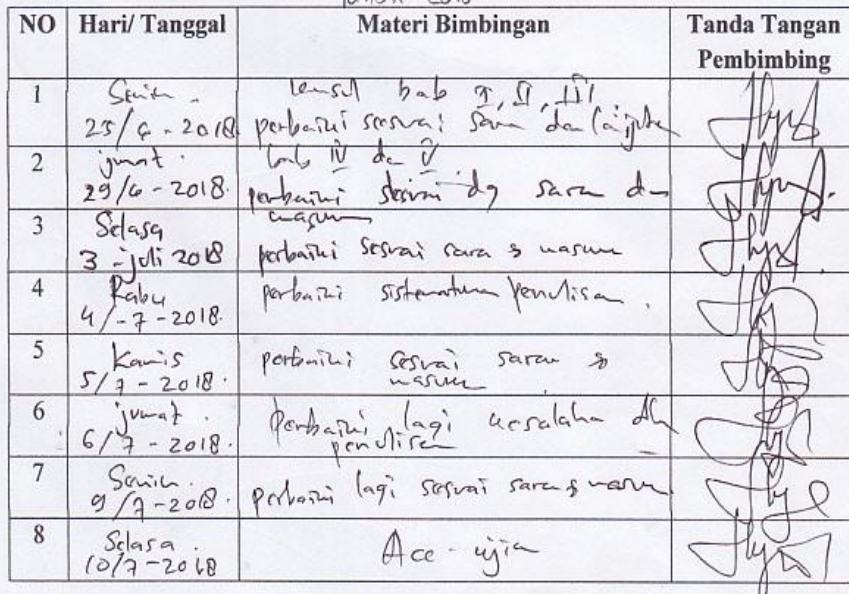 NO Hari/ Tanggal Materi Bimbingan Tanda Tangan
Pembimbing
1 Senin. konsul bab I, II, III
25/6-2018 perbaiki sesuai saran dan lanjutkan
2 jumat. bab IV dan V
29/6-2018. perbaiki sesuai dg saran dan
masukan
3 Selasa
3-juli 2018 perbaiki sesuai saran & masukan
4 Rabu perbaiki sistematika penulisan.
4/-7-2018.
5 Kamis perbaiki sesuai saran &
5/7-2018. masukan
6 jumat. Perbaiki lagi kesalahan dlm
6/7-2018. penulisan
7 Senin.
9/7-2018. perbaiki lagi sesuai saran & masukan
8 Selasa. Acc-ujian
10/7-2018